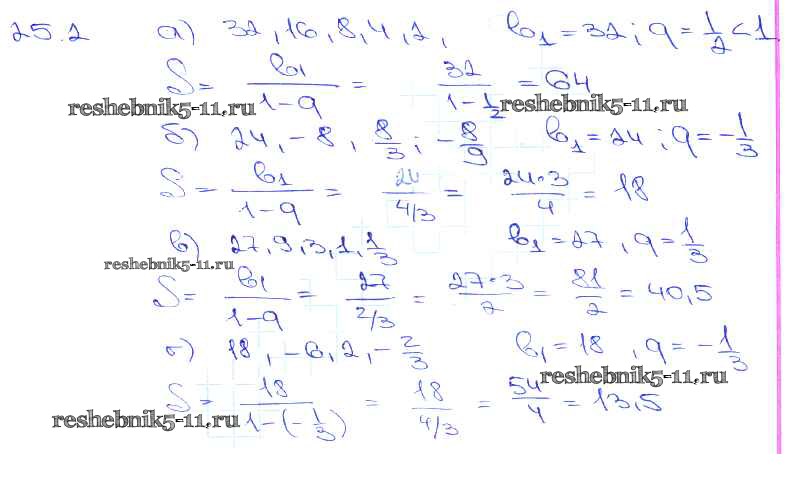 25.2 а) 32, 16, 8, 4, 2, b₁ = 32; q = 1/2 < 1
S = b₁/(1-q) = 32/(1-1/2) = 64
reshebnik5-11.ru reshebnik5-11.ru
б) 24, -8, 8/3; -8/9 b₁ = 24; q = -1/3
S = b₁/(1-q) = 24/(4/3) = 24·3/4 = 18
в) 27, 9, 3, 1, 1/3 b₁ = 27, q = 1/3
reshebnik5-11.ru
S = b₁/(1-q) = 27/(2/3) = 27·3/2 = 81/2 = 40,5
г) 18, -6, 2, -2/3 b₁ = 18, q = -1/3
reshebnik5-11.ru
S = 18/(1-(-1/3)) = 18/(4/3) = 54/4 = 13,5
reshebnik5-11.ru